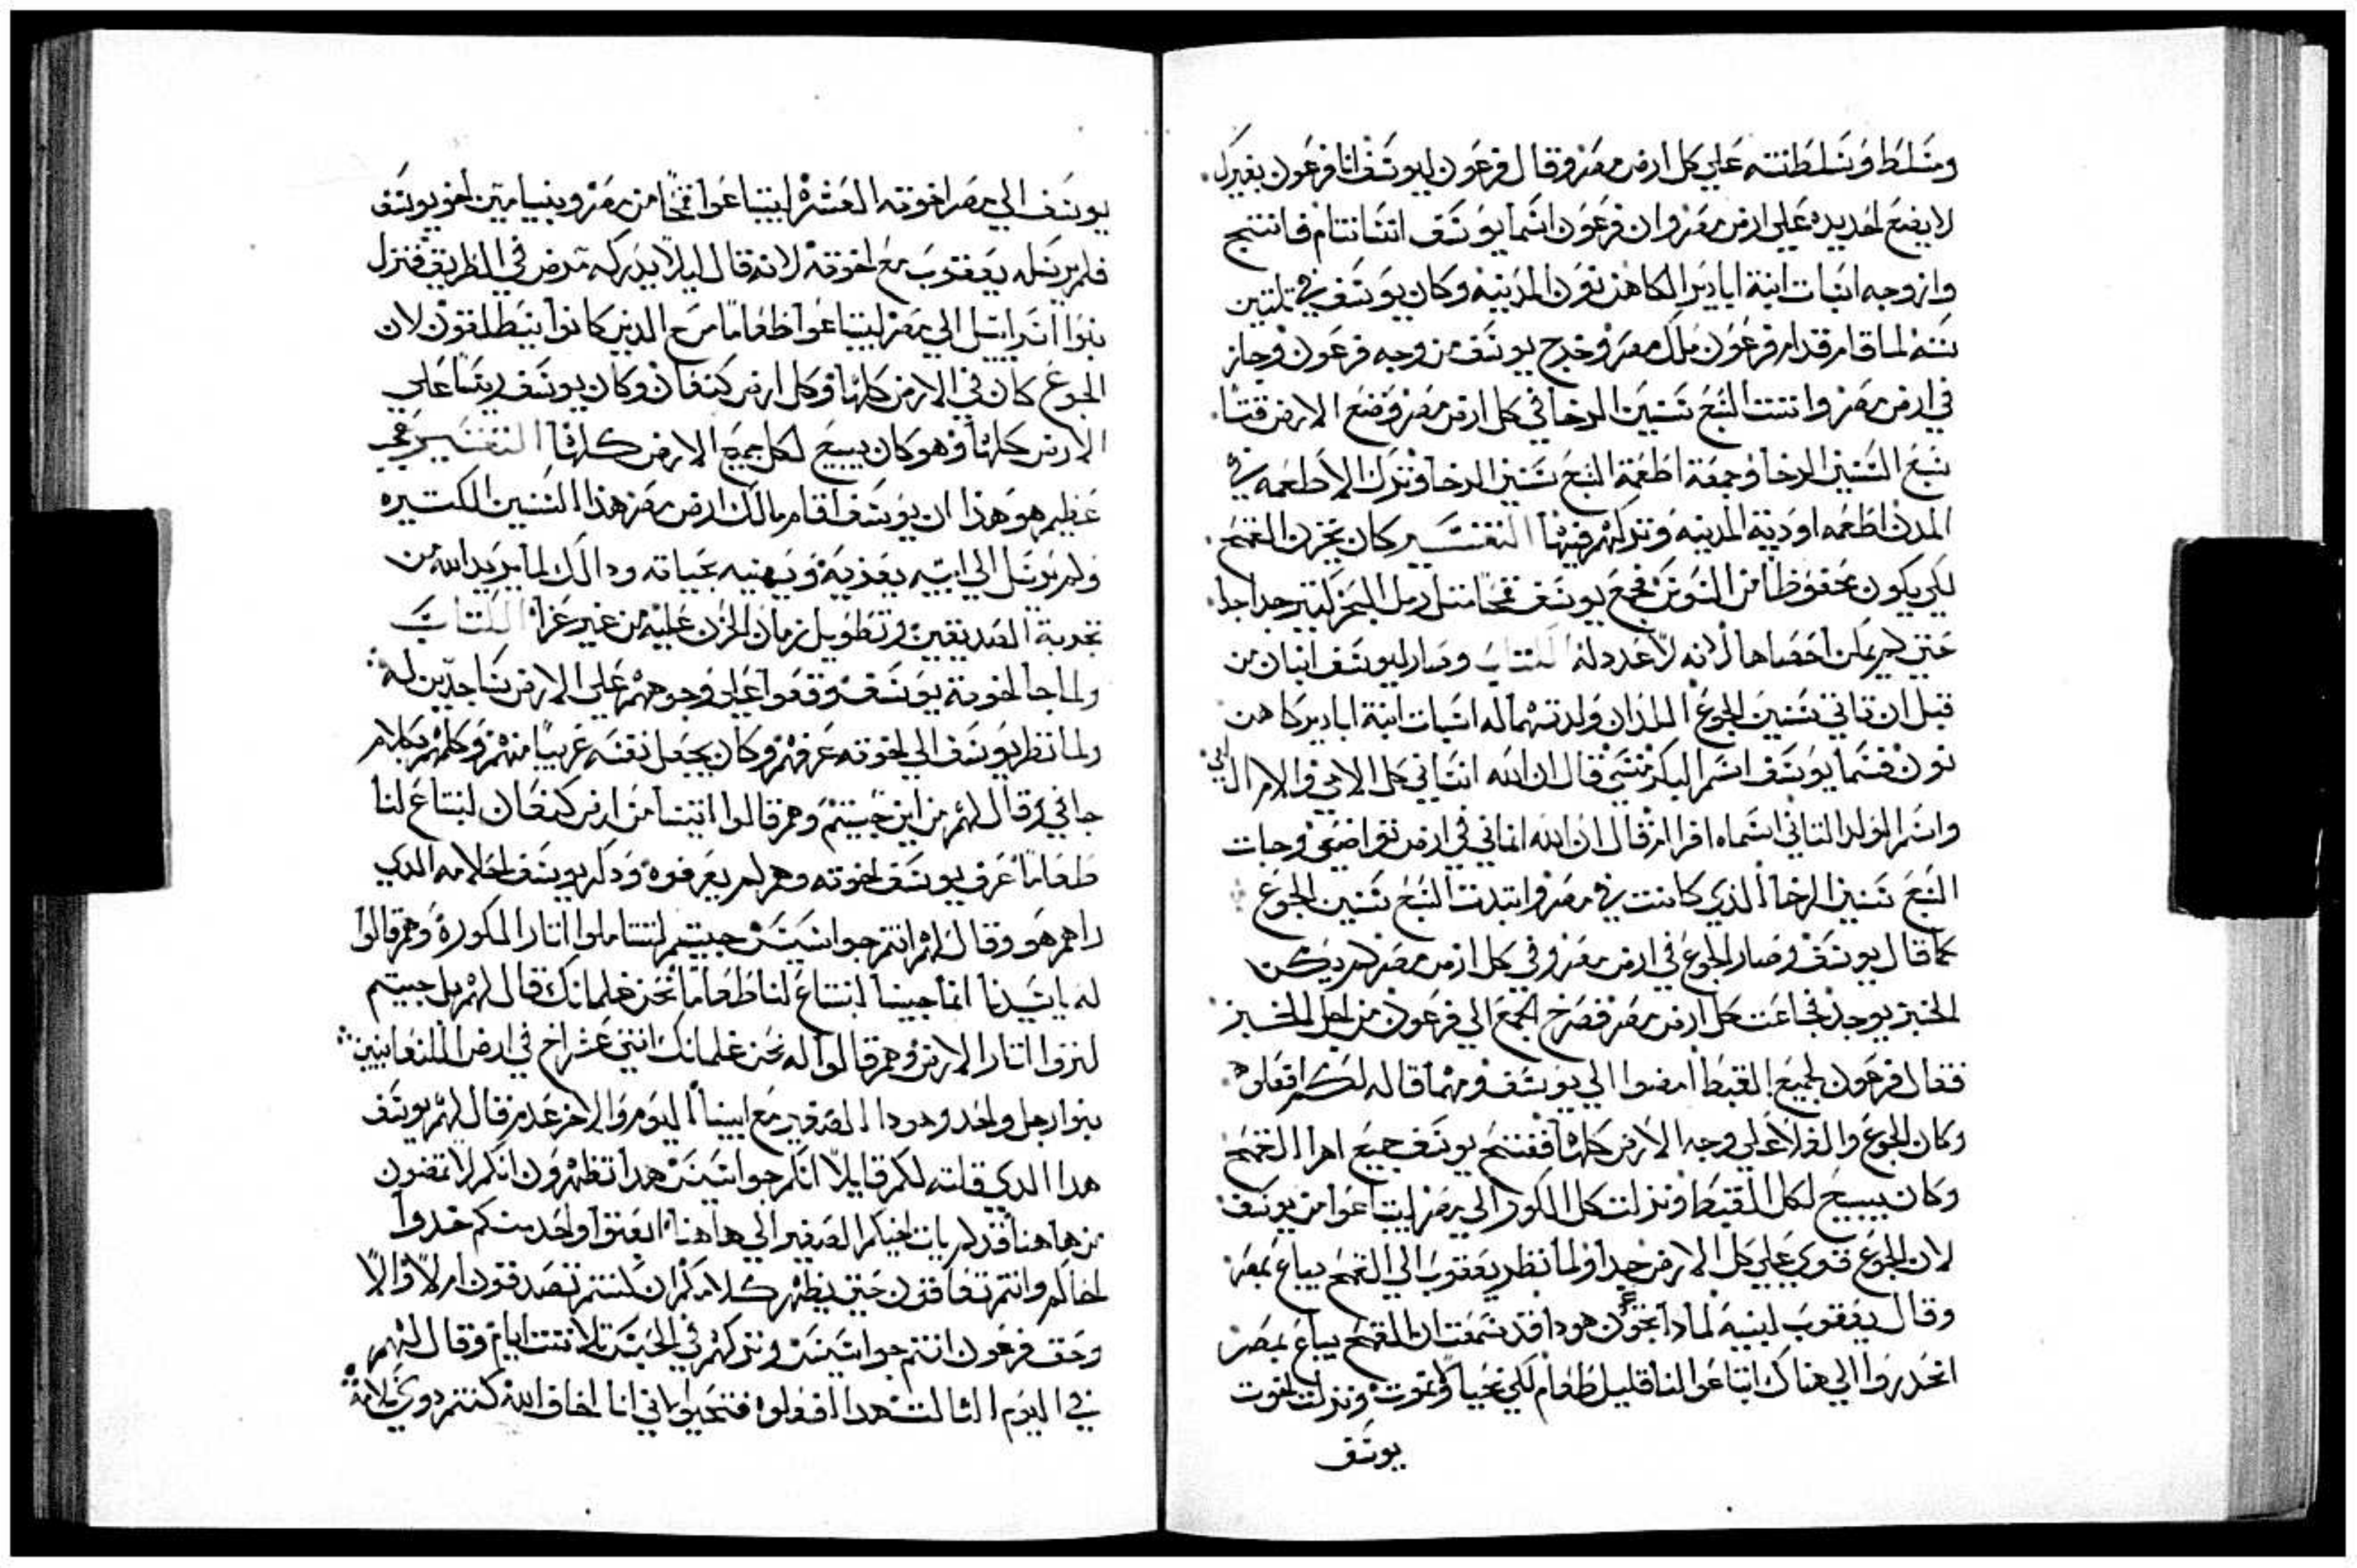 ومسلط وسلطنته علي كل ارض مصر وقال فرعون ليوسف انا فرعون بغيرك
لا يضع احد يده علي ارض مصر وان فرعون اسما يوسف انسانتام فانتتج
وازوجه اسنات ابنة اباديرا الكاهن نون المدينه وكان يوسف في تلتين
سنه لما قام قدام فرعون ملك مصر وخرج يوسف من وجه فرعون وجاز
في ارض مصر واتت السبع سنين الرخا في كل ارض مصر وضع الارض قتتا
سبع السنين الرخا وجمعة اطعمة السبع سنين الرخا وترك الاطعمه في
المدن اطعمه اودية المدينه وتركهم فيها التفسير كان يخزن القمح
لكي يكون محفوظا من السوس فجمع يوسف قمحا متل رمل البحر كتير جدا جدا
حتي لم يمكن احصاها لانه لا عدد له الكتاب وصار ليوسف ابنان من
قبل ان تاتي سنين الجوع اللذان ولدتهما له اسنات ابنة ابادير كاهن
نون فسما يوسف اسم البكر منسي قال ان الله انساني كل الامي والام ابي
واسم الولد التاني اسماه افرام قال ان الله انماني في ارض تواضعي وجات
السبع سنين الرخا الذي كانت في مصر وابتدت السبع سنين الجوع
كما قال يوسف وصار الجوع في ارض مصر وفي كل ارض مصر لم يكن
الخبز يوجد فجاعت كل ارض مصر فصرخ الجمع الي فرعون من اجل الخبز
فقال فرعون لجميع القبط امضوا الي يوسف ومهما قاله لكم افعلوه
وكان الجوع والغلا علي وجه الارض كلها ففتح يوسف جميع اهرا القمح
وكان يبيع لكل القبط ونزلت كل الكور الي مصر ليبتاعوا من يوسف
لان الجوع قوي علي كل الارض جدا ولما نظر يعقوب الي القمح يباع بمصر
وقال يعقوب لبنيه لمادا تجزعون هودا قد سمعت ان القمح يباع بمصر
انحدروا الي هناك ابتاعوا لنا قليل طعام لكي نحيا ولا نموت ونزلت اخوت
يوسف
يوسف الي مصر اخوته العشره ليبتاعوا قمحا من مصر وبنيامين اخو يوسف
فلم يرسله يعقوب مع اخوته لانه قال ليلا يدركه مرض في الطريق فنزل
بنوا اسراييل الي مصر ليبتاعوا طعاما مع الدين كانوا ينطلقون لان
الجوع كان في الارض كلها وكل ارض كنعان وكان يوسف ريسا علي
الارض كلها وهو كان يبيع لكل جميع الارض كلها التفسير عجب
عظيم هو هذا ان يوسف اقام مالك ارض مصر هذا السنين الكتيره
ولم يرسل الي ابيه يعزيه ويهنيه بحياته ودالك لما يريد الله من
تجربة الصديقين وتطويل زمان الحزن عليه من غير عزا الكتاب
ولما جا اخوة يوسف وقعوا علي وجوههم علي الارض ساجدين له
ولما نظر يوسف الي اخوته عرفهم وكان يجعل نفسه غريبا منهم وكلمهم بكلام
جافي وقال لهم من اين جيتم وهم قالوا اتينا من ارض كنعان لنبتاع لنا
طعاما عرف يوسف اخوته وهم لم يعرفوه ودكر يوسف احلامه الدي
راهم هو وقال لهم انتم جواسيس جيتم لتتاملوا اتار الكوره وهم قالوا
له يا سيدنا انما جينا لنبتاع لنا طعاما نحن غلمانك قال لهم بل جيتم
لتروا اتار الارض وهم قالوا له نحن غلمانك اتني عشر اخ في ارض الكنعانيين
بنوا رجل واحد وهودا الصغير مع ابينا اليوم والاخر عدم قال لهم يوسف
هدا الدي قلته لكم قايلا انكم جواسيس هدا تظهرون انكم لا تمضون
من هاهنا قد لم يات اخيكم الصغير الي هاهنا ابعتوا واحد منكم خدوا
اخاكم وانتم تعاقون حتي يظهر كلامكم ان كنتم تصدقون ام لا والا
وحق فرعون انتم جواسيس وتركهم في الحبس تلاتت ايام وقال لهم
في اليوم التالت هدا افعلوه فتحيوا فاني انا اخاف الله كنتم دوي سلامه